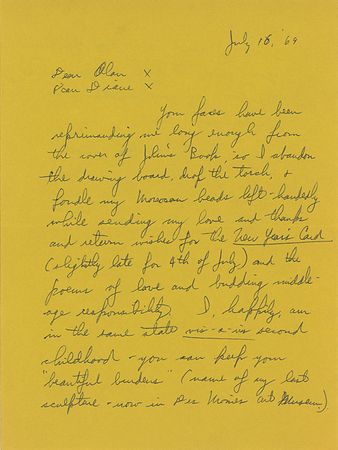 July 18, '69
Dear Alan x
Dear Diane x
Your faces have been
reprimanding me long enough from
the cover of John's Book, so I abandon
the drawing board, drop the torch, &
fondle my Moroccan beads left-handedly
while sending my love and thanks
and return wishes for the New Year's Card
(slightly late for 4th of July) and the
poems of love and budding middle-
age responsibility. I, happily, am
in the same state vis-a-vis second
childhood - you can keep your
"beautiful burdens" (name of my last
sculpture - now in Des Moines Art Museum.)